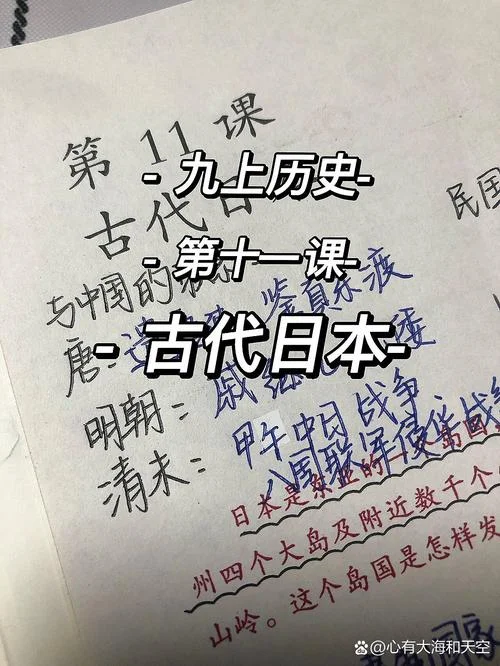 第 11 课
- 九上历史-
古代日
民国
- 第十一课-
与中国的
唐: 鉴真东渡
- 古代日本-
明朝: 戚 倭
清末: 甲午中日战争
八国联军侵华战
日本是东亚的一个岛国
州四个大岛及附近数千个
山岭。这个岛国是怎样发
心有大海和天空